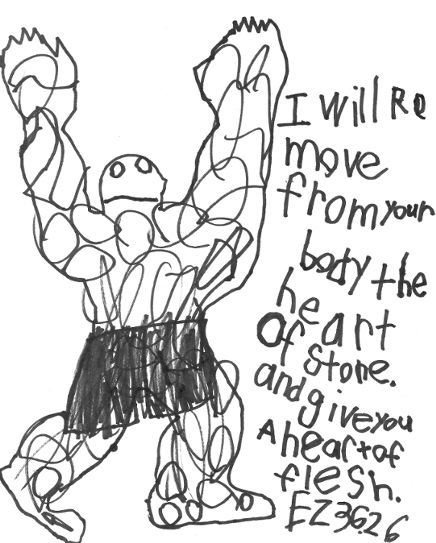 I will Re
move
from your
body the
heart
of Stone.
and give you
A heart of
flesh.
EZ 36.26